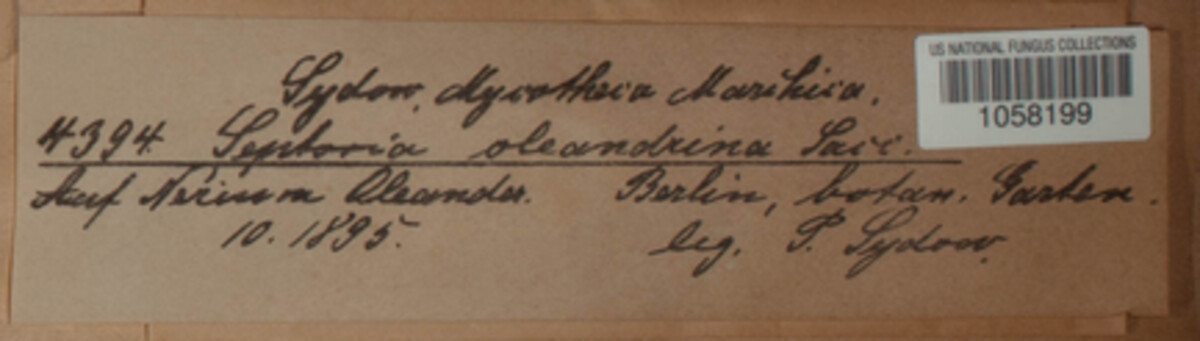 US NATIONAL FUNGUS COLLECTIONS
1058199
Sydow, Mycotheca Marchica.
4394. Septoria oleandrina Sacc.
Auf Nerium Oleander. Berlin, botan. Garten.
10. 1895. leg. P. Sydow.